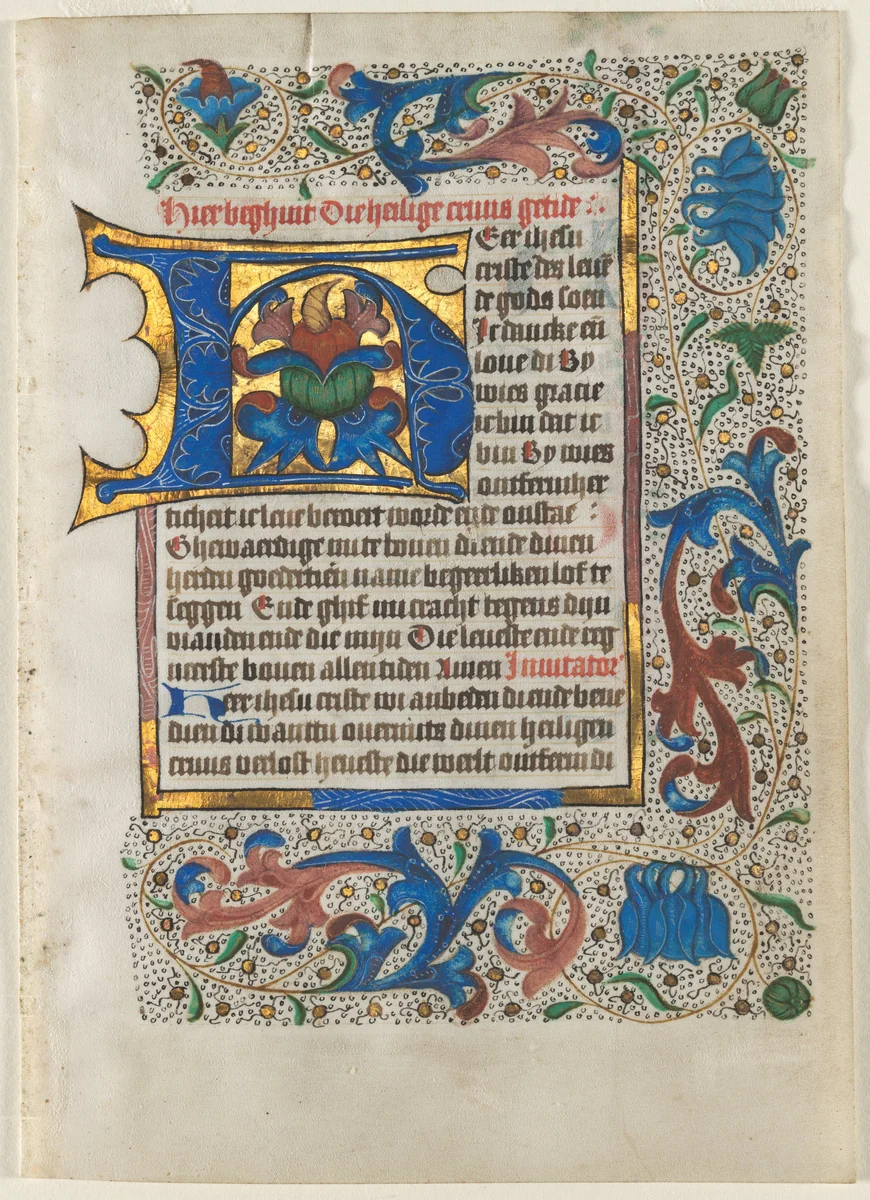 Hier beghint Die heilige cruus getide
HEere ihesu
criste des leuēs
de gods soen
Ic dancke eñ
loue di By
wies gracie
ic bin dat ic
bin By wies
ontfermher
ticheit ic leue beroert worde ende onstae
Ghewaerdige mi te bouen di ende dinen
herden goedertierē name begeerliken lof te
seggen Ende ghif mi cracht tegens dyn
vianden ende die mijn Die leueste ende
bouen allen tiden Amen Inuitator
Heere ihesu criste wi anbeden di ende bene
dien di wanttu ouermits dinen heiligen
cruus verlost heueste die werlt ontferm di